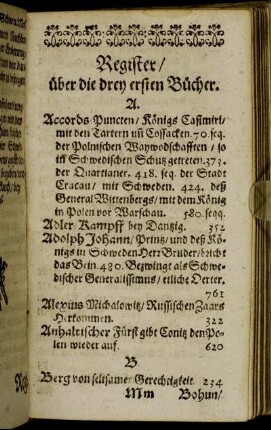 Register /
über die drey ersten Bücher.
A.
Accords-Puncten / Königs Casimiri /
mit den Tartern uñ Cossacken. 70. seq.
der Polnischen Waywodschafften / so
in Schwedischen Schutz getreten. 373.
der Quartianer. 418. seq. der Stadt
Cracau / mit Schweden. 424. deß
General Wittenbergs / mit dem König
in Polen vor Warschau. 580. seqq.
Adler Kampff bey Dantzig. 352
Adolph Johann / Printz / und deß Kö-
nigs in Schweden Herr Bruder / bricht
das Bein. 480. Bezwingt als Schwe-
discher Generalissimus / etliche Oerter.
761
Alexius Michalowitz / Russischen Zaars
Herkommen. 322
Anhaltischer Fürst gibt Conitz den Po-
len wieder auf. 620
B
Berg von seltsamer Gerechtigkeit 234
Mm Bohun /